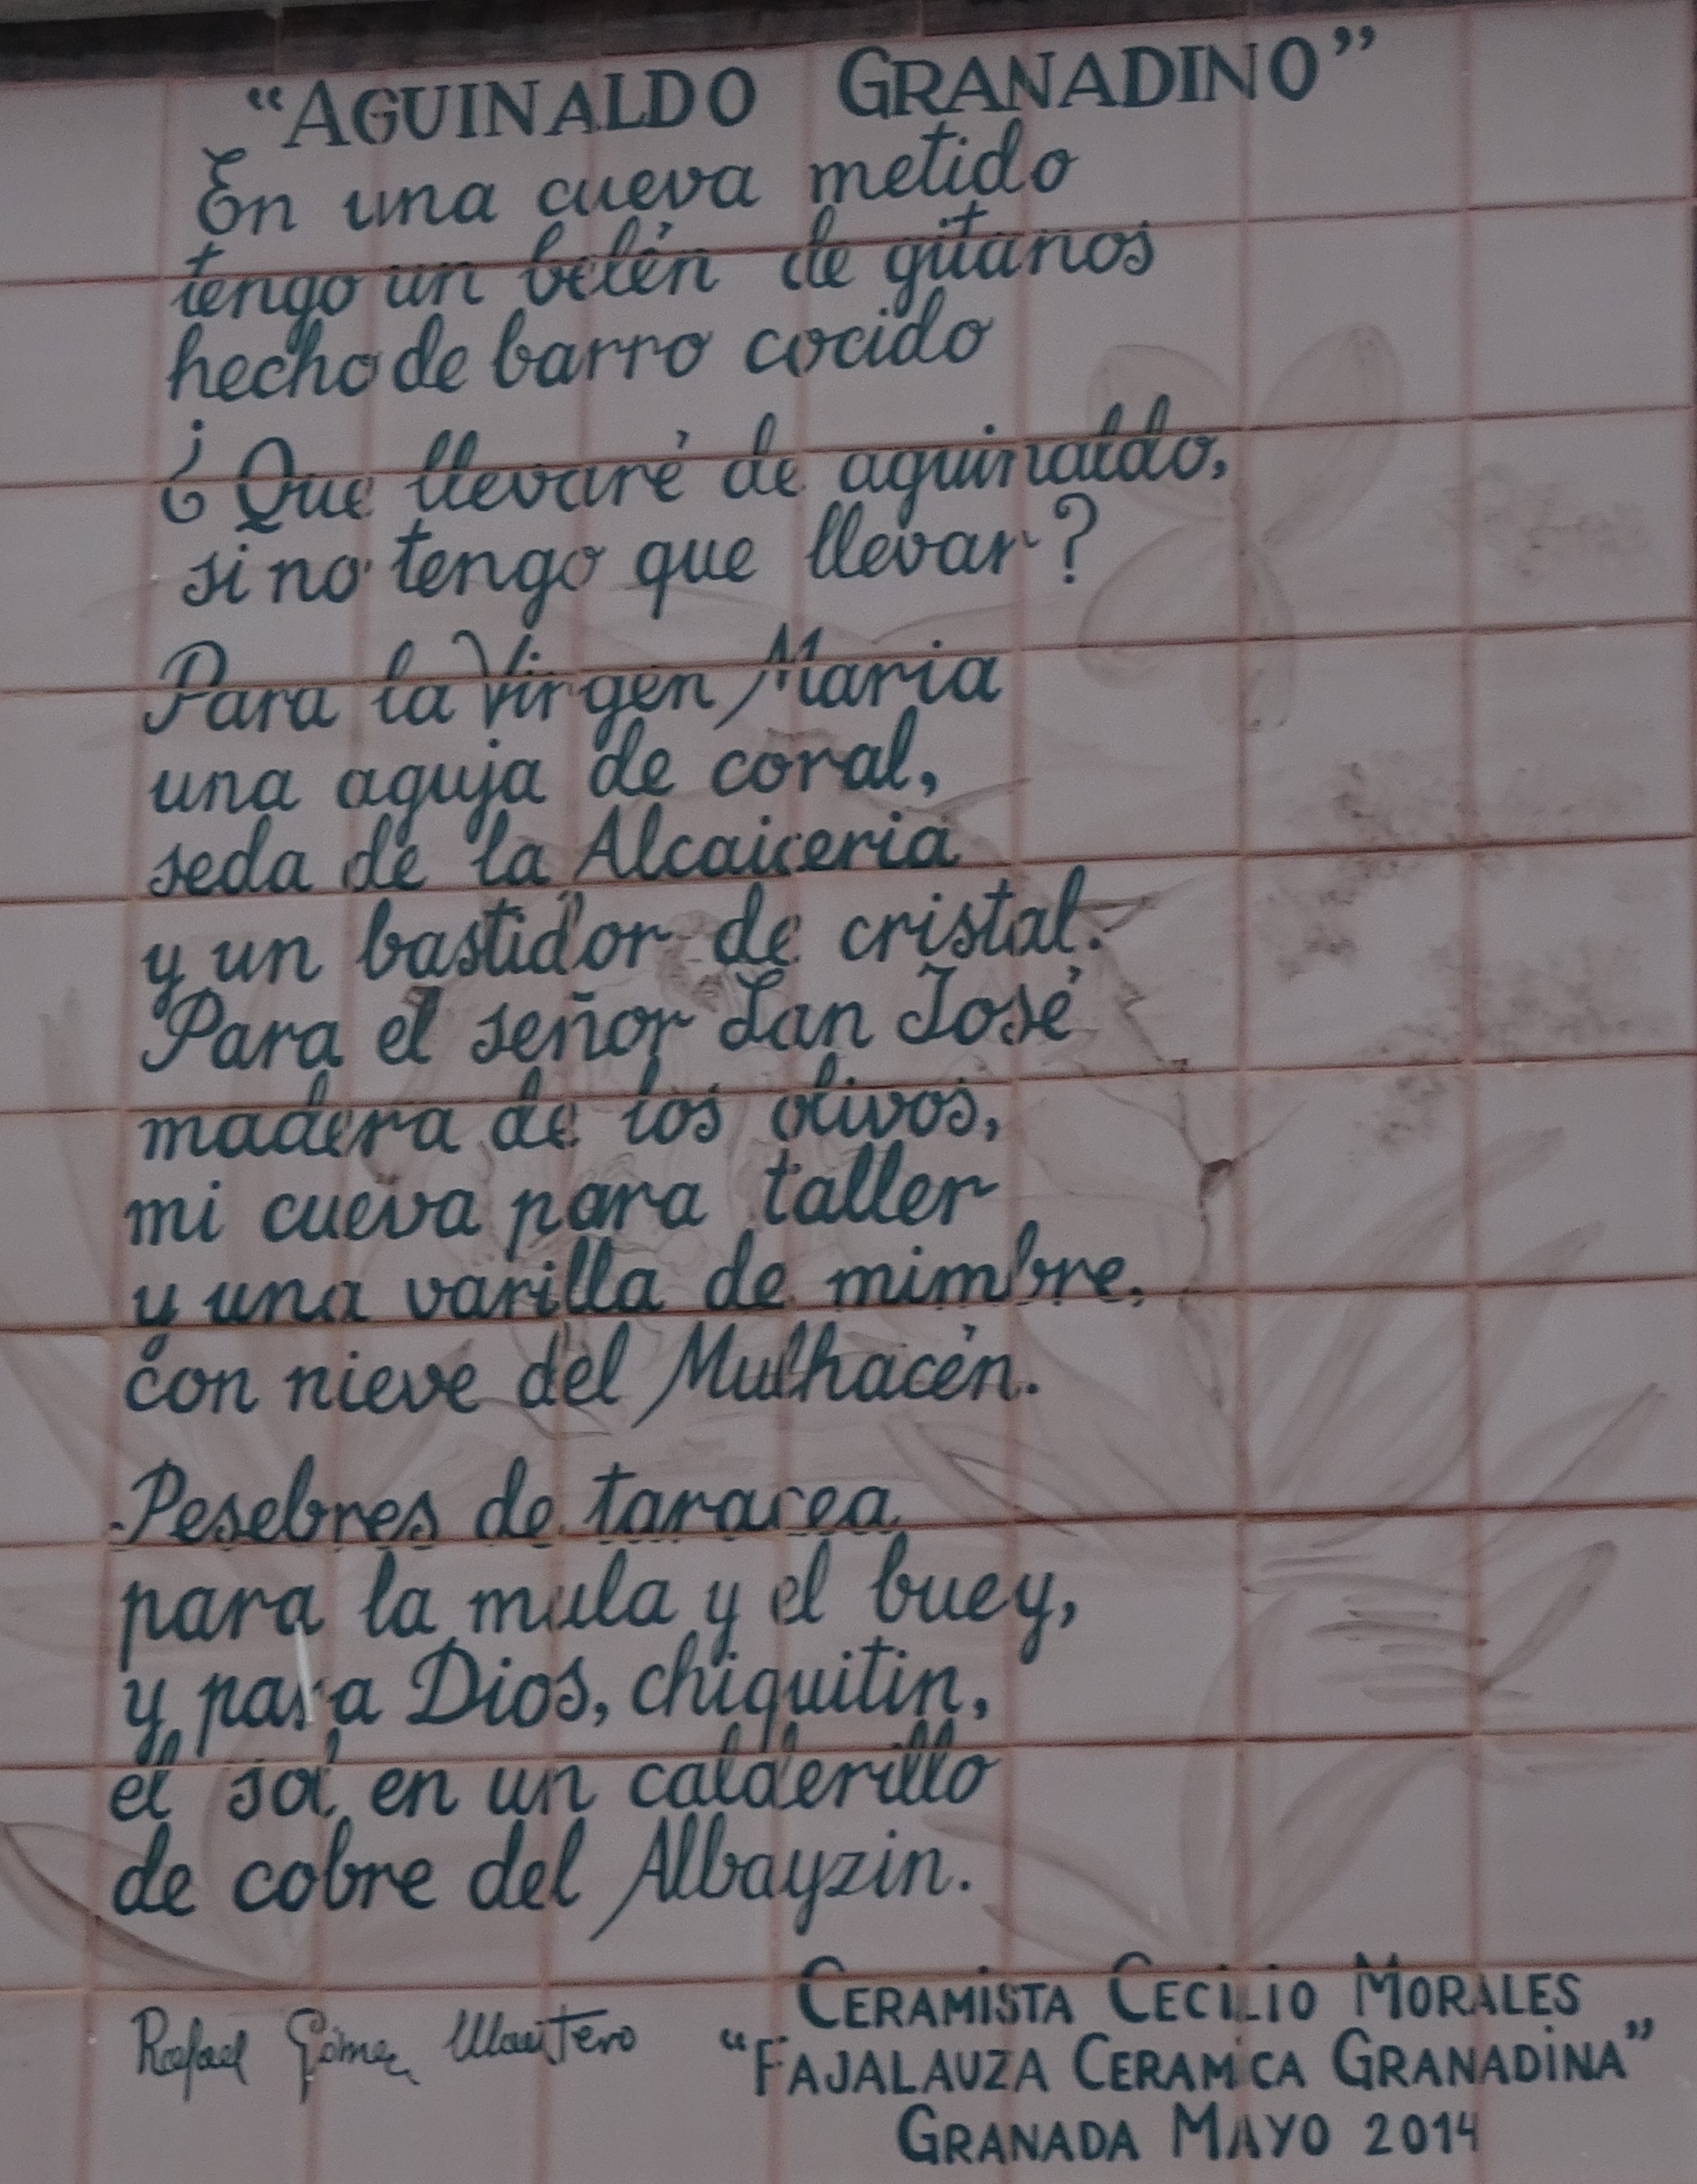 “AGUINALDO GRANADINO”
En una cueva metido
tengo un belén de gitanos
hecho de barro cocido
¿Que llevaré de aguinaldo,
si no tengo que llevar?
Para la Virgen Maria
una aguja de coral,
seda de la Alcaiceria
y un bastidor de cristal.
Para el señor San José
madera de los olivos,
mi cueva para taller
y una varilla de mimbre,
con nieve del Mulhacén.
Pesebres de taracea
para la mula y el buey,
y para Dios, chiquitin,
el sol en un calderillo
de cobre del Albayzin.
Rafael Gómez Montero
CERAMISTA CECILIO MORALES
“FAJALAUZA CERAMICA GRANADINA”
GRANADA MAYO 2014